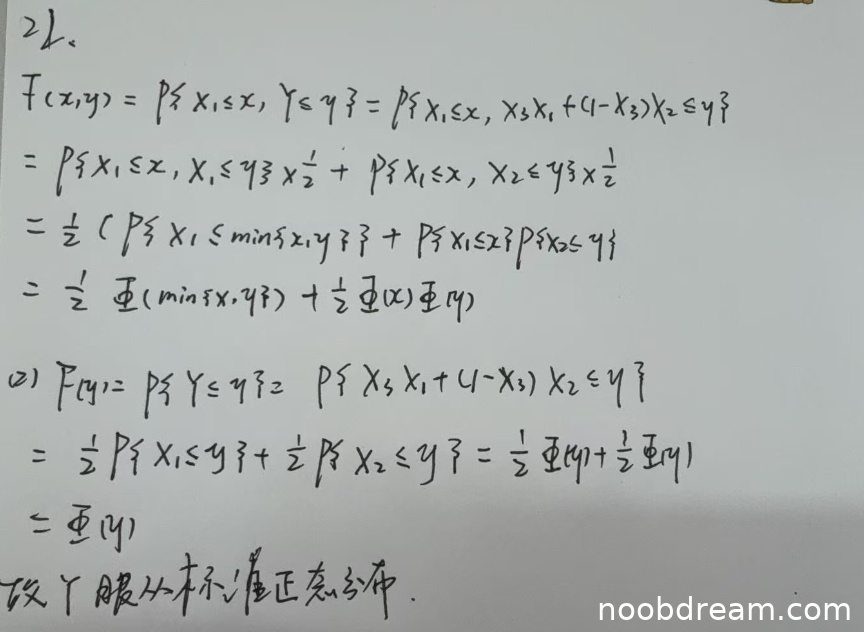 21.
F(x,y) = P{X₁≤x, Y≤y} = P{X₁≤x, X₃X₁+(1-X₃)X₂≤y}
= P{X₁≤x, X₁≤y}×1/2 + P{X₁≤x, X₂≤y}×1/2
= 1/2 (P{X₁≤min{x,y}} + P{X₁≤x}P{X₂≤y}
= 1/2 Φ(min{x,y}) + 1/2 Φ(x)Φ(y)
(2) F(y)= P{Y≤y}= P{X₃X₁+(1-X₃)X₂≤y}
= 1/2 P{X₁≤y}+ 1/2 P{X₂≤y} = 1/2 Φ(y)+1/2 Φ(y)
= Φ(y)
故Y服从标准正态分布.
noobdream.com